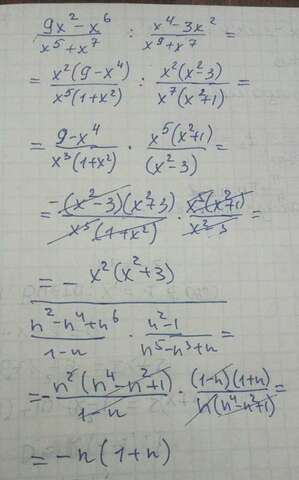 (9x² - x⁶)/(x⁵ + x⁷) : (x⁴ - 3x²)/(x⁹ + x⁷) =
= x²(9 - x⁴)/x⁵(1 + x²) : x²(x² - 3)/x⁷(x² + 1) =
= (9 - x⁴)/x³(1 + x²) · x⁵(x² + 1)/(x² - 3) =
= -(x² - 3)(x² + 3)/x³(1 + x²) · x⁵(x² + 1)/(x² - 3) =
= - x²(x² + 3)
(n² - n⁴ + n⁶)/(1 - n) · (n² - 1)/(n⁵ - n³ + n) =
= - n²(n⁴ - n² + 1)/(1 - n) : (1 - n)(1 + n)/n(n⁴ - n² + 1) =
= - n(1 + n)